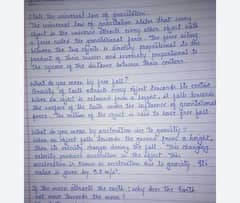 State the universal law of gravitation
The universal law of gravitation states that every
object in the universe attracts every other object with
a force called the gravitational force. The force acting
between the two objects is directly proportional to the
product of their masses and inversely proportional to
the square of the distance between their centres.
What do you mean by free fall?
Gravity of Earth attracts every object towards its centre
When an object is released from a height, it falls towards
the surface of the Earth under the influence of gravitational
force. The motion of the object is said to have free fall
What do you mean by acceleration due to gravity?
When an object falls towards the ground from a height,
then its velocity changes during the fall. This changing
velocity produces acceleration in the object. This
acceleration is known as acceleration due to gravity. Its
value is given by 9.8 m/s².
If the moon attracts the earth, why does the Earth
not move towards the moon?